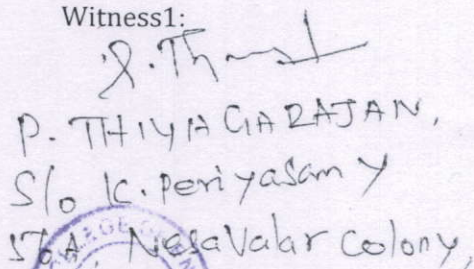 Witness1:
P. THIYAGARAJAN,
S/o K. Periyasamy
Nesavalar Colony,